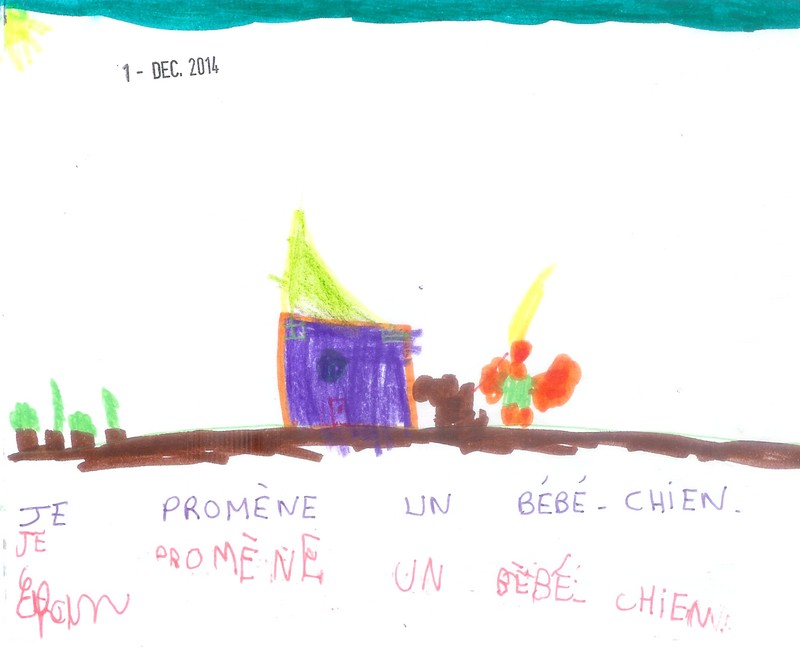 1 - DEC. 2014
JE PROMÈNE UN BÉBÉ-CHIEN.
JE PROMÈNÈ UN BÈBÉ- CHIEN.